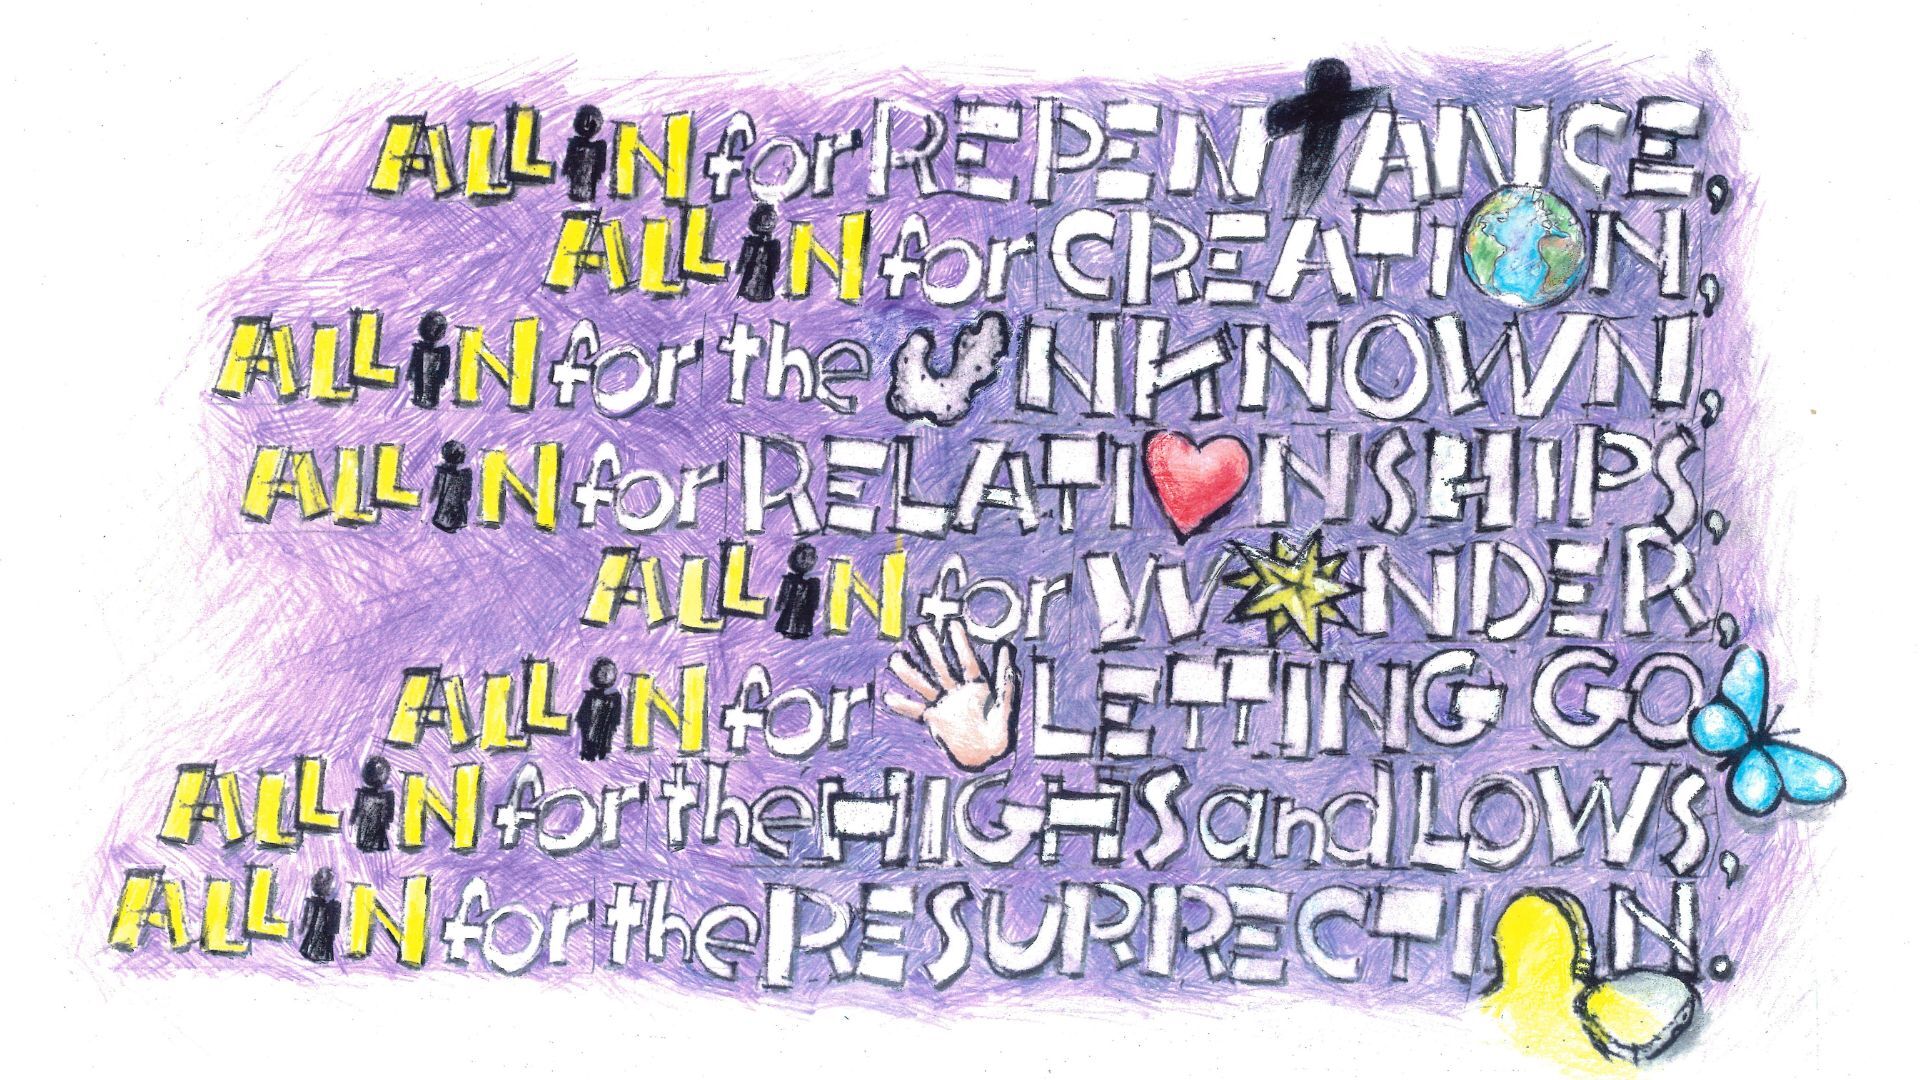 ALL iN for REPENTANCE,
ALL iN for CREATION,
ALL iN for the UNKNOWN,
ALL iN for RELATIONSHIPS,
ALL iN for WONDER,
ALL iN for LETTING GO
ALL iN for the HIGHS and LOWS,
ALL iN for the RESURRECTION.